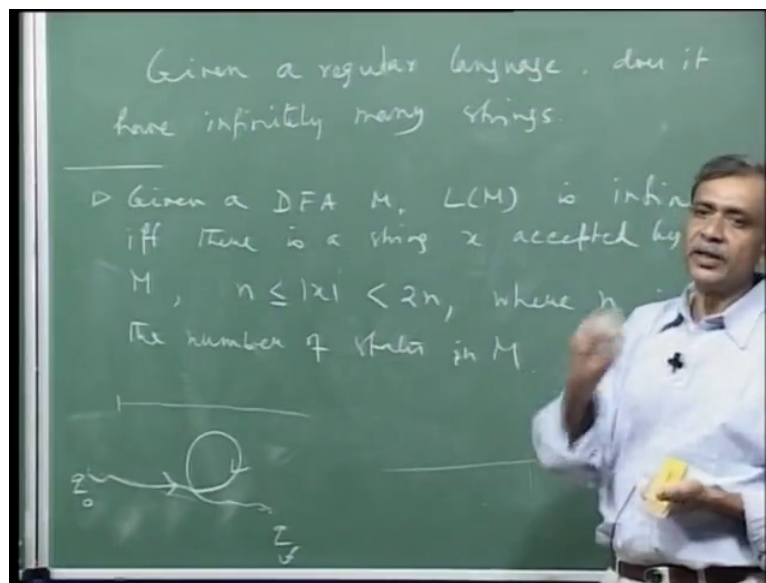 Given a regular language. does it
have infinitely many strings.
▷ Given a DFA M, L(M) is infin
iff there is a string x accepted by
M, n ≤ |x| < 2n, where n i
the number of states in M.
q₀
q_f